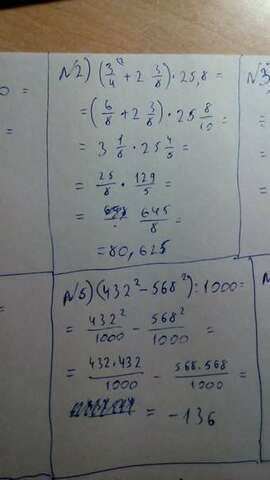 N2) (3/4 + 2 3/8) · 25,8 =
= (6/8 + 2 3/8) · 25 8/10 =
= 3 1/8 · 25 4/5 =
= 25/8 · 129/5 =
= 645/8 =
= 80,625
N3
N5) (432² - 568²) : 1000 =
= 432²/1000 - 568²/1000 =
= 432.432/1000 - 568.568/1000 =
= -136